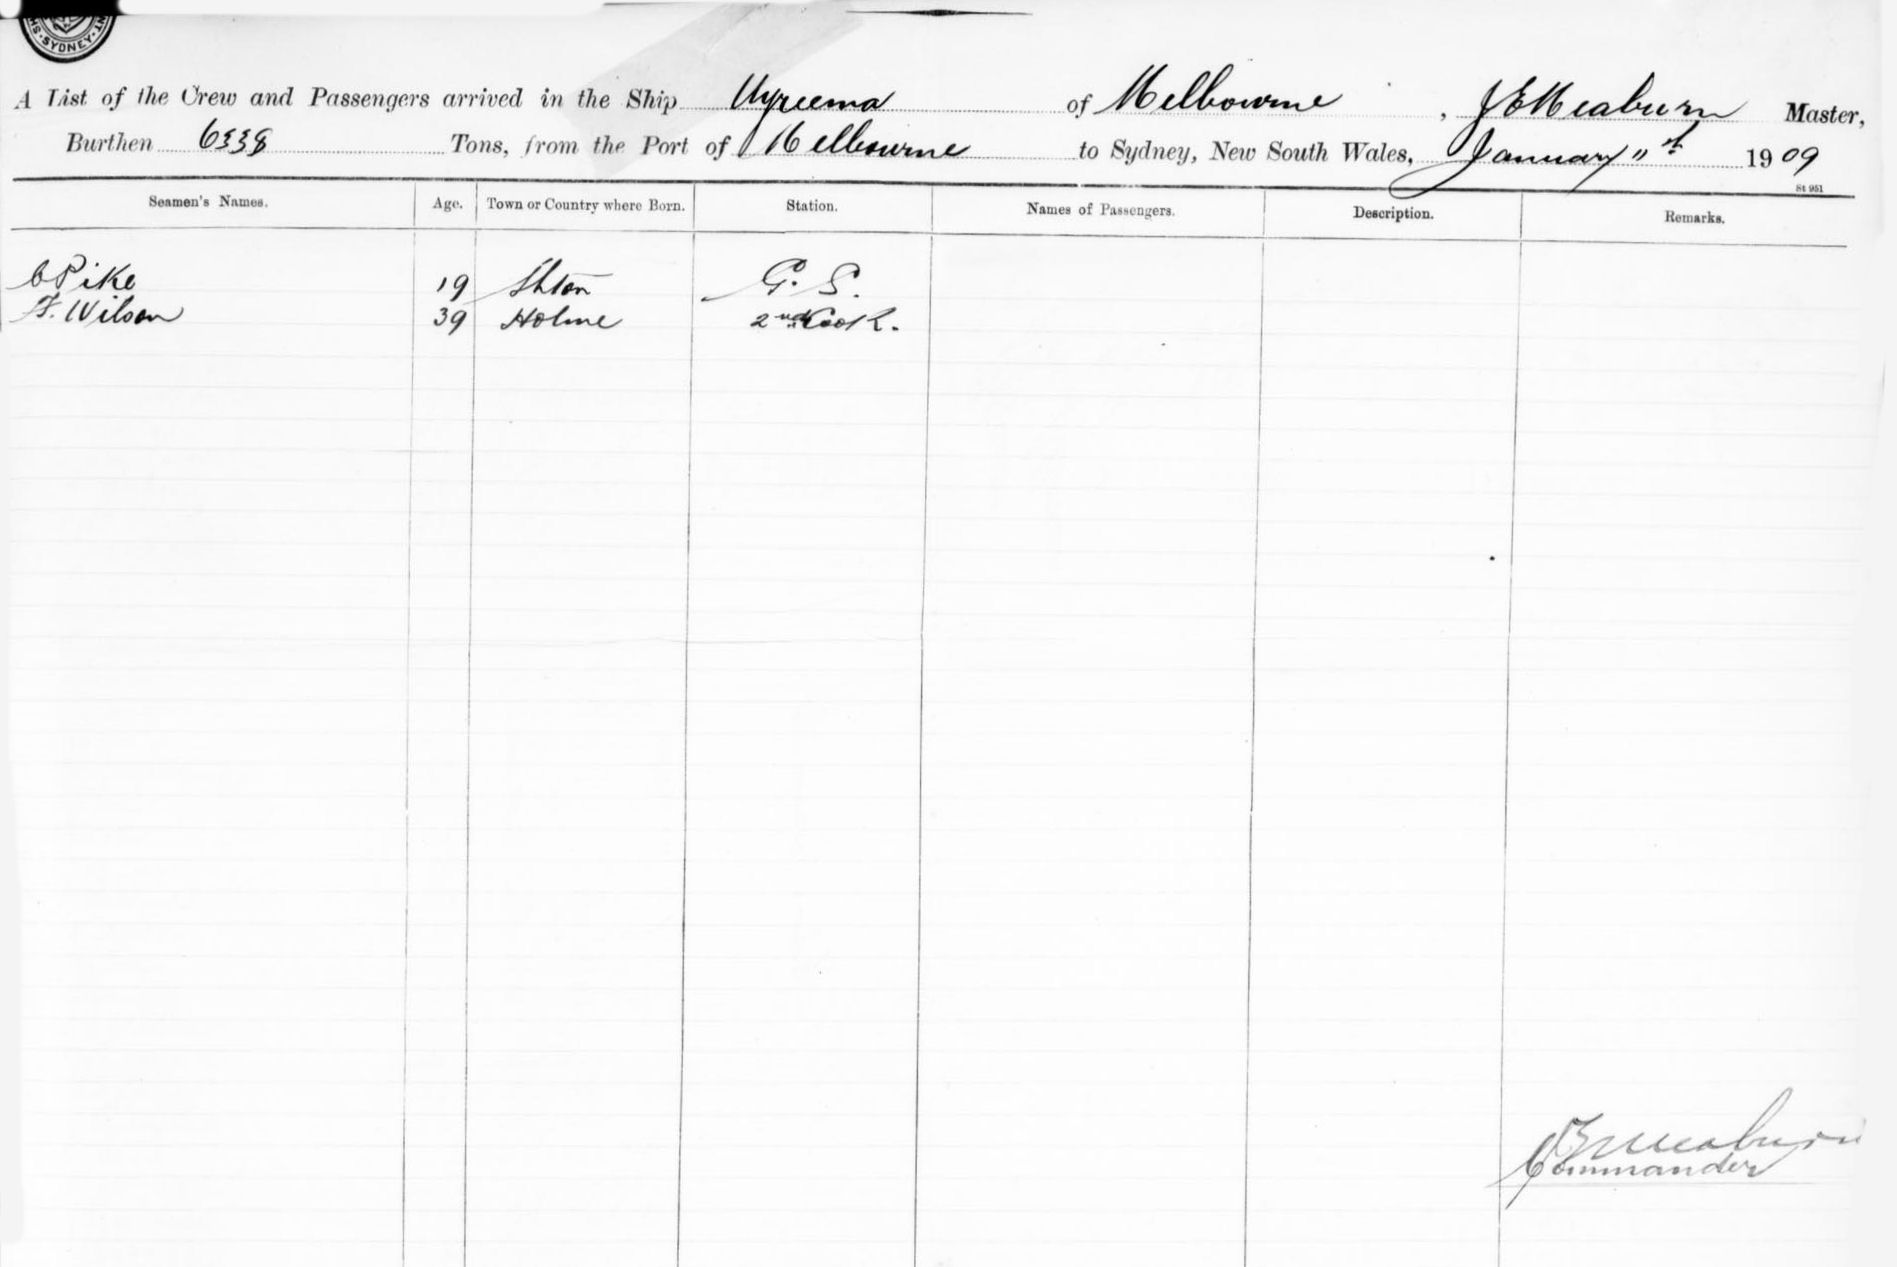 SYDNEY
A List of the Crew and Passengers arrived in the Ship Wyreema of Melbourne, J E Meaburn Master,
Burthen 6338 Tons, from the Port of Melbourne to Sydney, New South Wales, January 11th 1909
St 951
Seamen's Names. Age. Town or Country where Born. Station. Names of Passengers. Description. Remarks.
C Pike 19 S'hton G. S.
F. Wilson 39 Holme 2nd Cook.
J E Meaburn
Commander